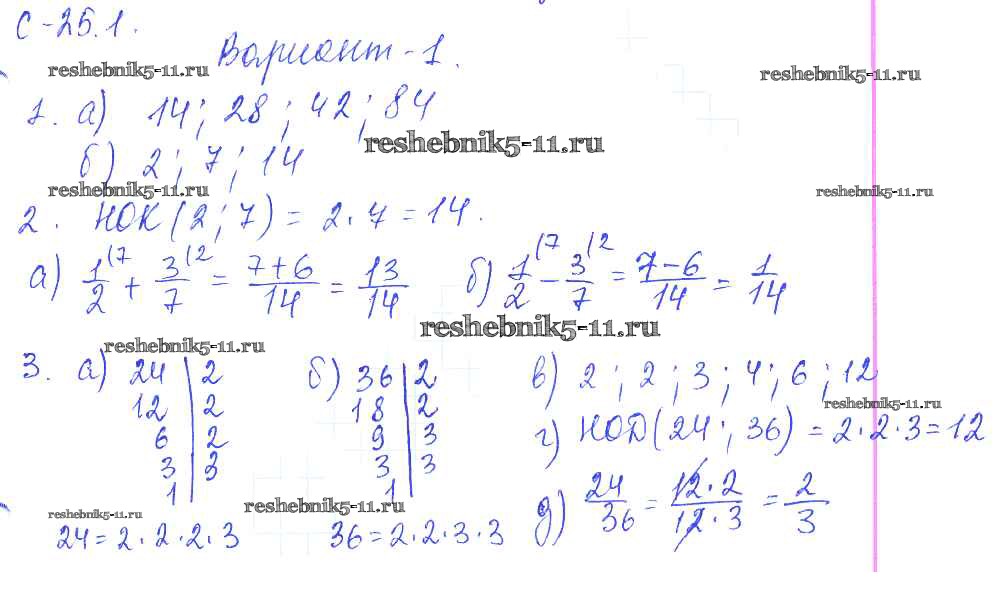 С-25.1.
Вариант-1.
reshebnik5-11.ru reshebnik5-11.ru
1. а) 14; 28; 42; 84
reshebnik5-11.ru
б) 2; 7; 14
reshebnik5-11.ru reshebnik5-11.ru
2. НОК(2; 7) = 2·7 = 14.
а) 1/2 (7 + 3/7 (2 = 7+6/14 = 13/14 б) 1/2 (7 − 3/7 (2 = 7−6/14 = 1/14
reshebnik5-11.ru
reshebnik5-11.ru
3. а) 24 | 2 б) 36 | 2 в) 2; 2; 3; 4; 6; 12
12 | 2 18 | 2 reshebnik5-11.ru
6 | 2 9 | 3 г) НОД(24; 36) = 2·2·3 = 12
3 | 3 3 | 3
1 | 1 | д) 24/36 = 12·2/12·3 = 2/3
reshebnik5-11.ru reshebnik5-11.ru
24 = 2·2·2·3 36 = 2·2·3·3